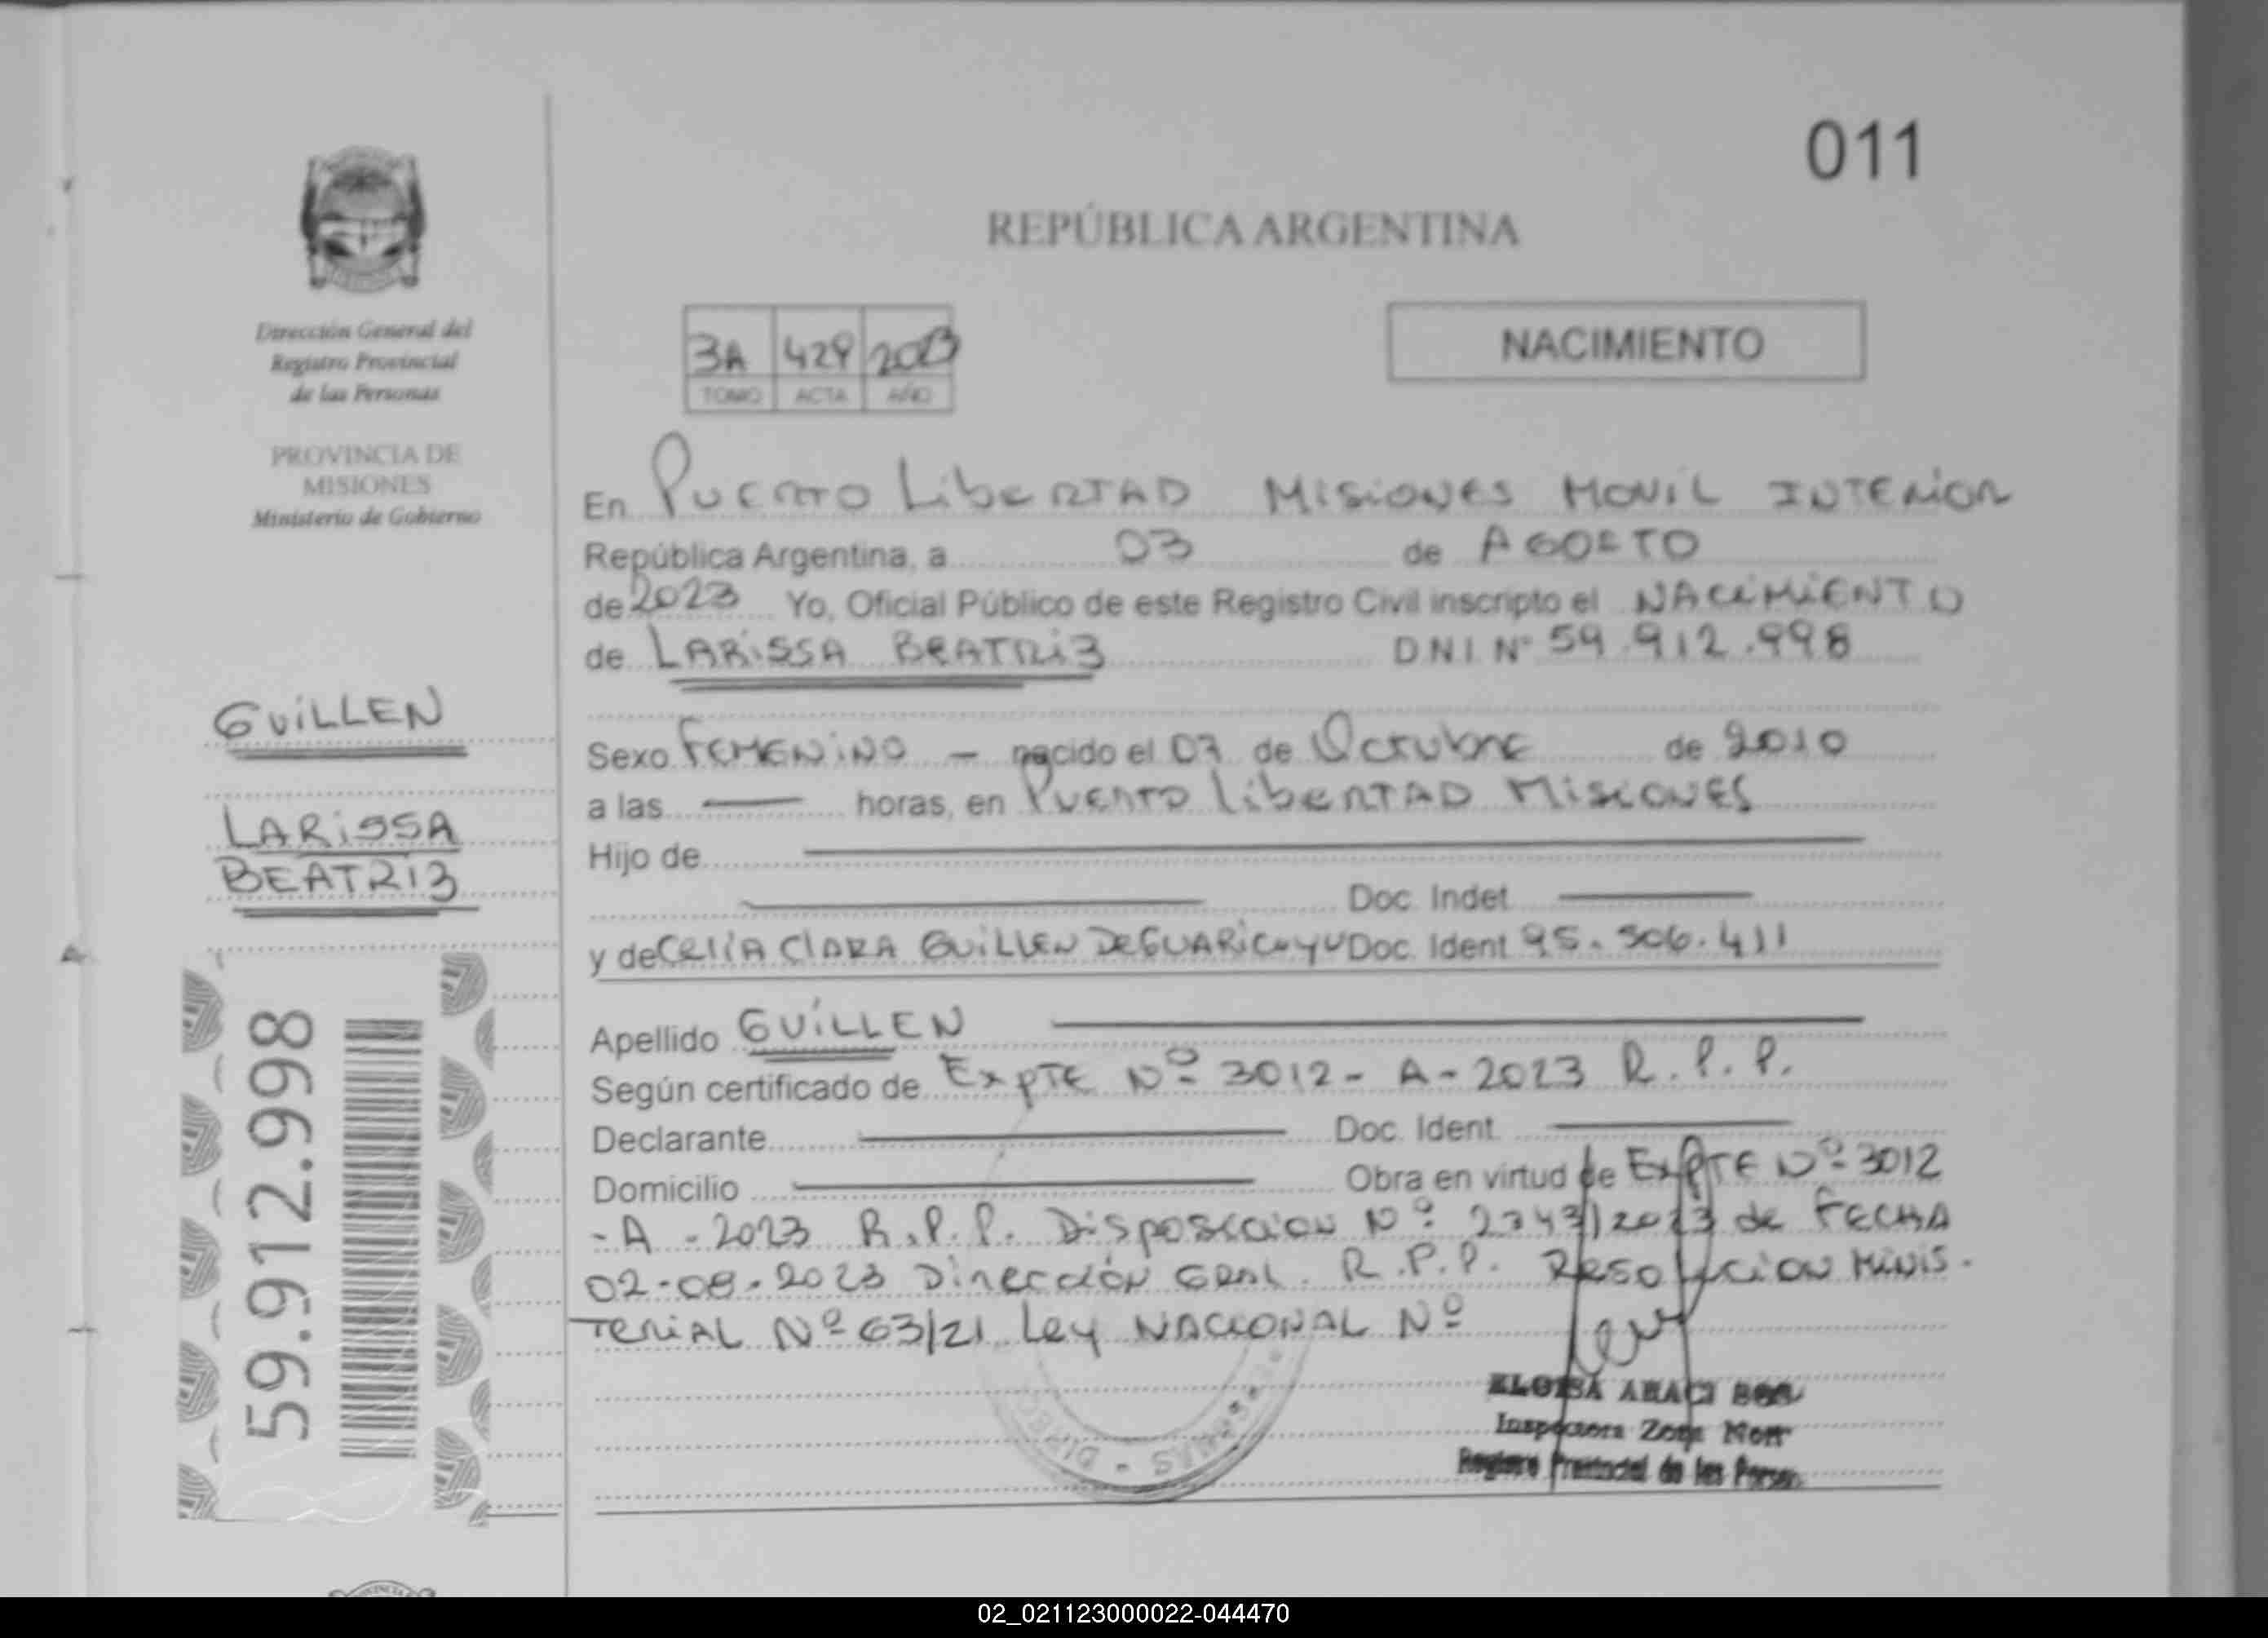 011
REPÚBLICA ARGENTINA
Dirección General del
Registro Provincial
de las Personas
PROVINCIA DE
MISIONES
Ministerio de Gobierno
3A 429 2023
TOMO ACTA AÑO
NACIMIENTO
En PUERTO LibERTAD MISIONES MOVIL INTERIOR
República Argentina, a 03 de AGOSTO
de 2023 Yo, Oficial Público de este Registro Civil inscripto el NACIMIENTO
de LARISSA BEATRIZ DNI Nº 59.912.998
GUILLEN
LARISSA
BEATRIZ
59.912.998
Sexo FEMENINO - nacido el 07 de Octubre de 2010
a las horas, en PUERTO LibERTAD MISIONES
Hijo de
Doc. Indet
y de CELIA CLARA GUILLEN DEGUARICUYU Doc. Ident 95.506.411
Apellido GUILLEN
Según certificado de EXPTE Nº 3012-A-2023 R.P.P.
Declarante Doc. Ident
Domicilio Obra en virtud de EXPTE Nº 3012
-A-2023 R.P.P. DISPOSICION Nº 2343/2023 de FECHA
02-08-2023 Dirección GRAL. R.P.P. RESOLUCION MINIS-
TERIAL Nº 63/21 Ley NACIONAL Nº
ELOISA ARACI
Inspectora Zona
Registro Provincial de las
02_021123000022-044470